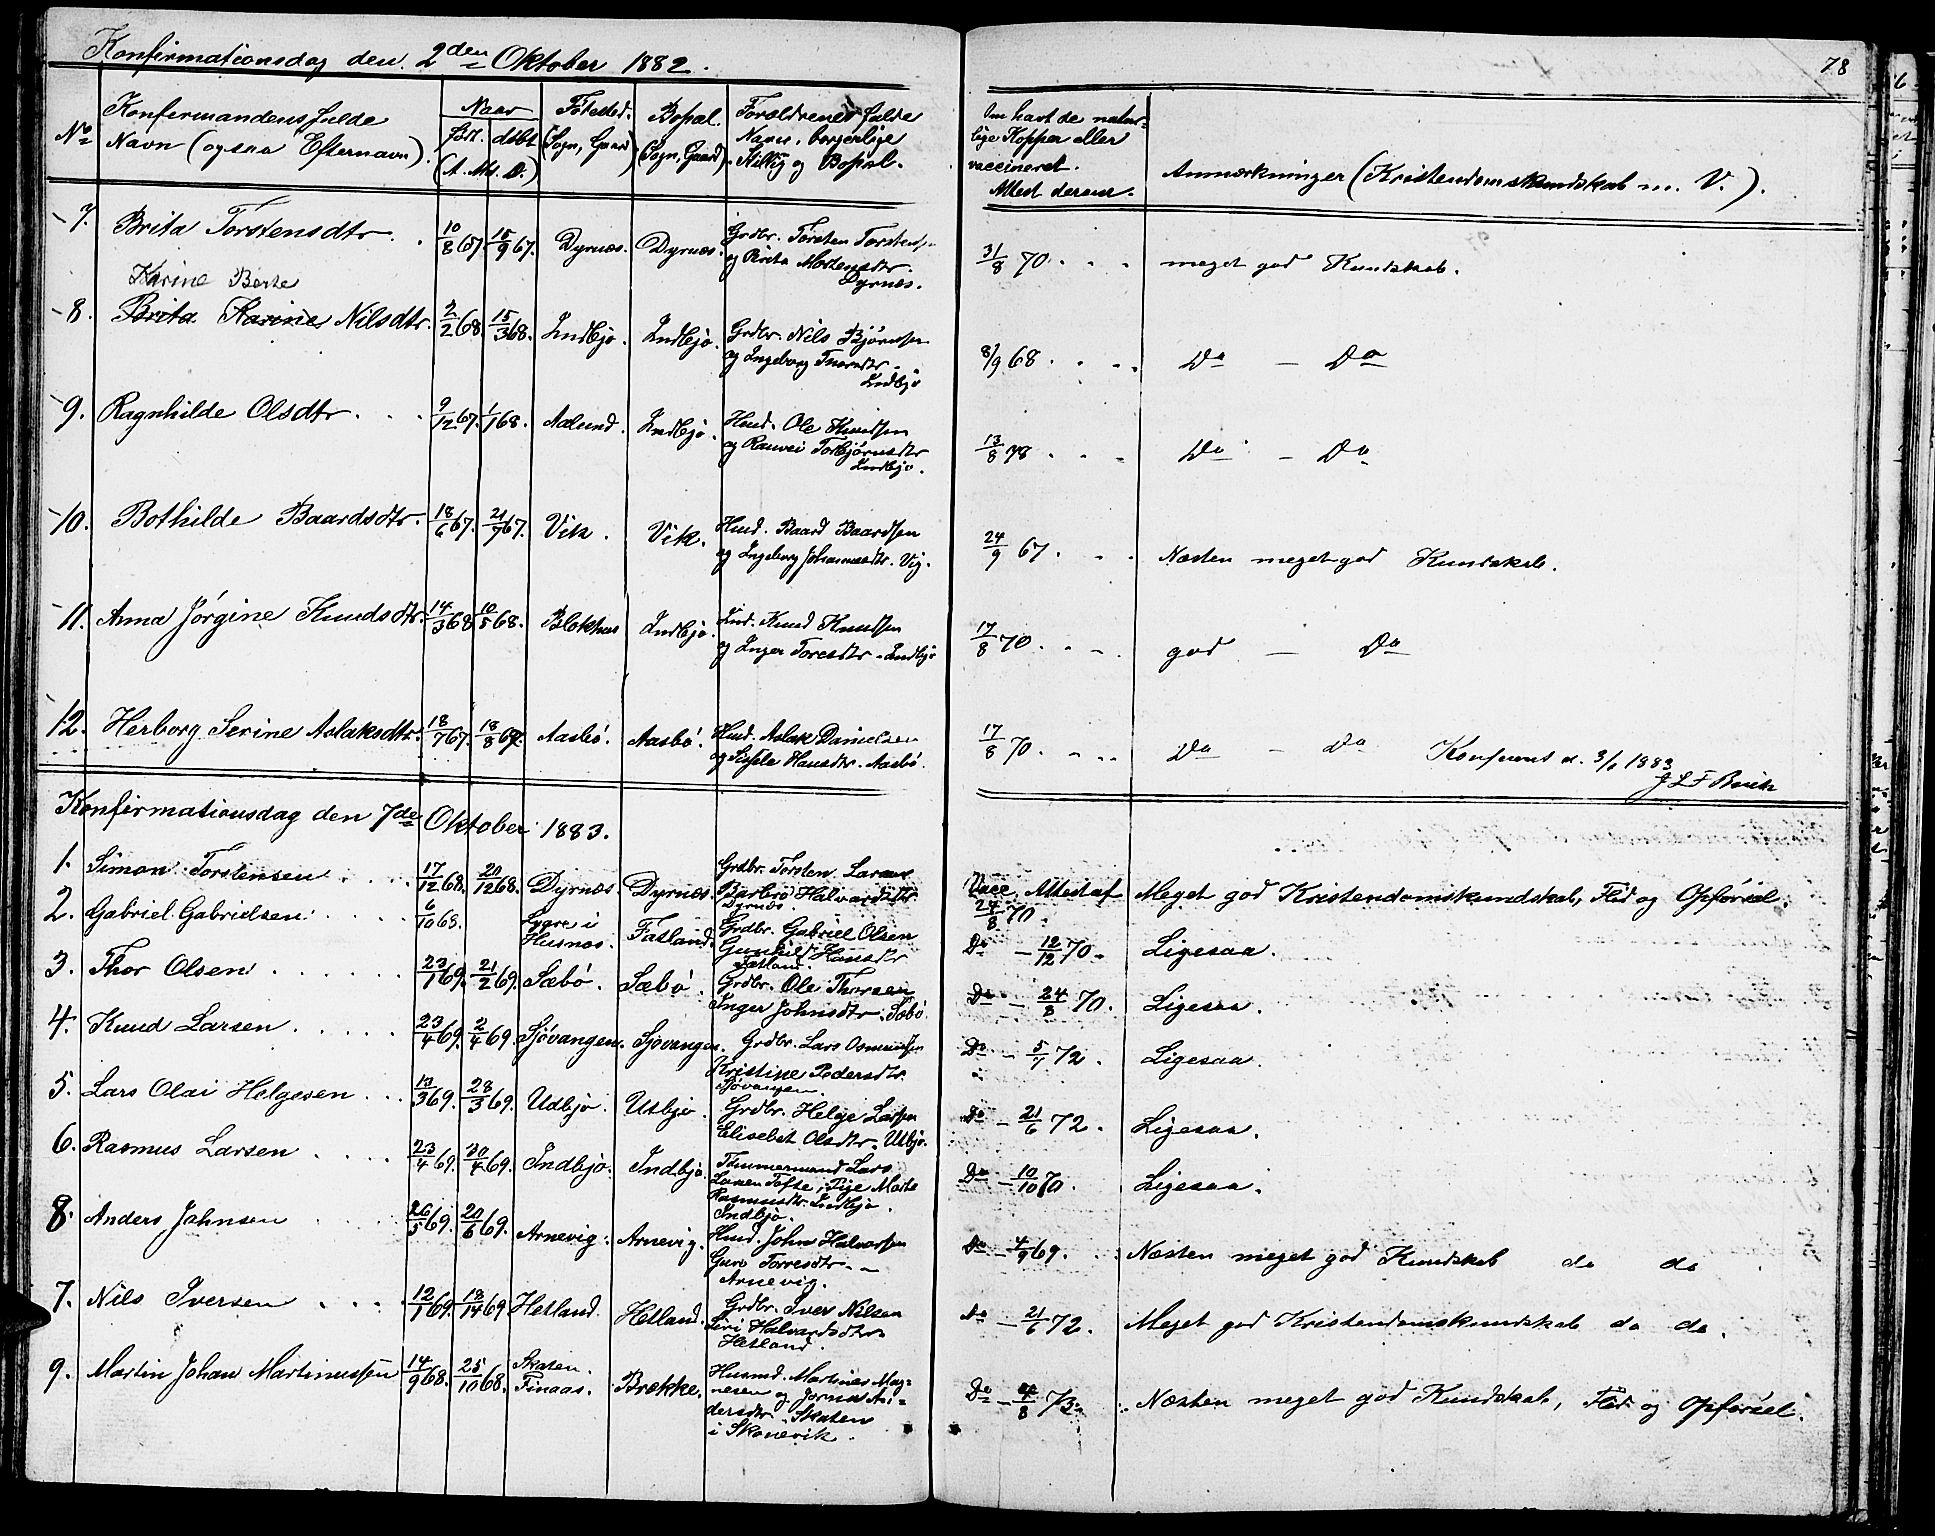 Konfirmationsdag den 2den Oktober 1882.
78
No Konfirmandens fulde Navn (ogsaa Efternavn). Naar født. døbt (A. Mts. D.) Fødested. (Sogn, Gaard) Bopæl. (Sogn, Gaard) Forældrenes fulde Navn, borgerlige Stilling og Bopæl. Om havt de naturlige Kopper eller vaccineret. Attest derom. Anmærkninger (Kristendomskundskab m. V.).
7. Brita Torstensdtr. 10/8 67. 15/9 67. Dyrnæs. Dyrnæs. Grdbr. Torsten Torstens. og Brita Mortensdtr. Dyrnæs. 31/8 70. meget god Kundskab.
Karine Berte
8. Brita Karine Nilsdtr. 2/2 68. 15/3 68. Indbjo. Indbjo. Grdbr. Nils Bjørnsen og Ingeborg Indbjo 8/9 68 Do - Do
9. Ragnhilde Olsdtr. 9/12 67. 1/1 68. Aalund. Indbjo. Husd. Ole Knudsen og Ranvei Torbjørnsdtr Indbjo. 13/8 78 Do - Do
10. Bothilde Baardsdtr. 18/6 67. 21/7 67. Vik. Vik. Husd. Baard Baardsen og Ingeborg Johannesdtr. Vig. 24/9 67. Næsten meget god Kundskab.
11. Anna Jørgine Knudsdtr. 14/3 68 10/5 68. Blokhus Indbjo. Ind. Knud Knudsen og Inger Toresdtr. Indbjo 17/8 70. god - Do
12. Herborg Serine Aslaksdtr. 18/7 67. 18/8 67. Aasbø. Aasbø. Husd. Aslak Danielsen og Sissela Hansdtr. Aasbø. 17/8 70. Do - Do Konfirmeret d. 3/6 1883
Konfirmationsdag den 7de Oktober 1883.
1. Simon Torstensen 17/12 68. 20/12 68. Dyrnæs. Dyrnæs. Grdbr. Torsten Larsen Barbro Halvardsdtr. Dyrnæs Vacc. Attest af 24/8 70. Meget god Kristendomskundskab, Flid og Opførsel.
2. Gabriel Gabrielsen 6/10 68. Lygre i Husnæs. Fatland. Grdbr. Gabriel Olsen Gunhild Hansdtr Fatland. Do - 12/12 70. Ligesaa.
3. Thor Olsen 23/1 69. 21/2 69. Sæbø. Sæbø. Grdbr. Ole Thorsen Inger Johnsdtr. Sæbø. Do - 24/8 70. Ligesaa.
4. Knud Larsen 23/4 69. 2/4 69. Sjøvangen. Sjøvangen. Grdbr. Lars Osmundsen Kristine Pedersdtr. Sjøvangen. Do - 5/7 72. Ligesaa.
5. Lars Olai Helgesen 13/3 69. 28/3 69. Udbjo. Utbjo. Grdbr. Helge Larsen Elisebet Olsdtr. Utbjo. Do - 21/6 72. Ligesaa.
6. Rasmus Larsen 23/4 69. 30/4 69. Indbjo. Indbjo. Tømmermand Lars Larsen Tofte, Pige Marte Rasmusdtr. Indbjo. Indbjo. Do - 10/10 70. Ligesaa.
8. Anders Johnsen 26/5 69. 20/6 69. Arnevig. Arnevig. Husd. John Halvorsen Guro Torresdtr. Arnevig. Do - 4/9 69. Næsten meget god Kundskab do do
7. Nils Iversen 12/1 69. 18/14 69 Hetland. Hetland. Grdbr. Iver Nilsen Siri Halvardsdtr. Hetland. Do - 21/6 72. Meget god Kristendomskundskab do do.
9. Martin Johan Martinussen 14/9 68. 25/10 68. Skaten. Finaas. Brække. Husmd. Martines Magnesen og Andersdtr Skaten i Skonevik. Do - 4/8 73. Næsten meget god Kundskab, Flid og Opførsel.